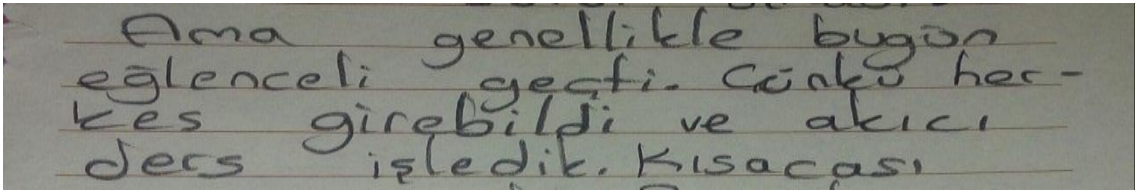 Ama genellikle bugün
eğlenceli geçti. Çünkü her-
kes girebildi ve akıcı
ders işledik. Kısacası